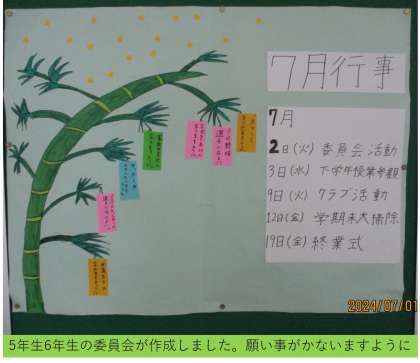 7月行事
7月
2日(火) 委員会活動
3日(水) 下学年授業参観
9日(火) クラブ活動
12日(金) 学期末大掃除
19日(金) 終業式
2024/07/01
5年生6年生の委員会が作成しました。願い事がかないますように